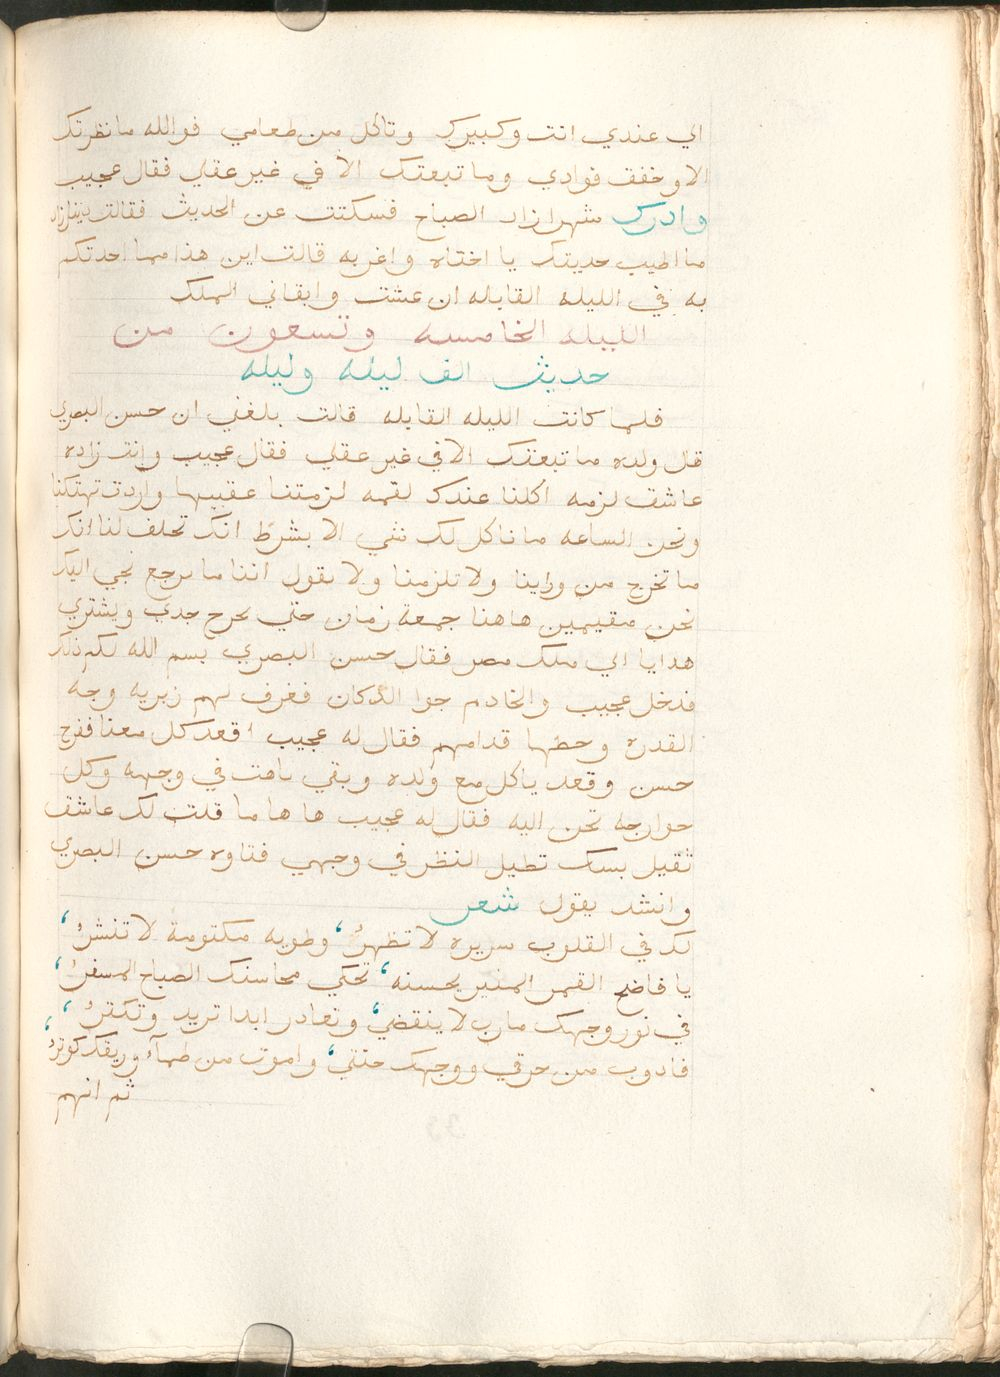 الي عندي انت وكبيرك وتاكل من طعامي فوالله ما نظرتك
الا وخفق فوادي وما تبعتك الا في غير عقلي فقال عجيب
وادرك شهرازاد الصباح فسكتت عن الحديث فقالت دينارزاد
ما اطيب حديثك يا اختاه واغربه قالت اين هذا مما احدثكم
به في الليله القابله ان عشت وابقاني الملك
الليله الخامسه وتسعون من
حديث الف ليله وليله
فلما كانت الليله القابله قالت بلغني ان حسن البصري
قال ولده ما تبعتك الا في غير عقلي فقال عجيب وانت زاده
عاشق لزمه اكلنا عندك لقمه لزمتنا عقبيها واردت تهتكنا
ونحن الساعه ما ناكل لك شي الا بشرط انك تحلف لنا انك
ما تخرج من وراينا ولا تلزمنا ولا بقول اننا ما برجع نجي اليك
نحن مقيمين هاهنا جمعة زمان حتي يحرج جدي ويشتري
هدايا الي ملك مصر فقال حسن البصري بسم الله لكم ذلك
فدخل عجيب والخادم جوا الدكان فغرف لهم زبريه وجه
القدره وحطها قدامهم فقال له عجيب اقعد كل معنا ففرح
حسن وقعد ياكل مع ولده وبقي باهت في وجهه وكل
جوارحه تحن اليه فقال له عجيب ها ها ما قلت لك عاشق
ثقيل بسك تطيل النظر في وجهي فتاوه حسن البصري
وانشد يقول شعر
لك في القلوب سريره لا تظهرُ، وطويه مكتومة لا تنشرُ،
يا فاضح القمر المنير بحسنه، تحكي محاسنك الصباح المسفرُ،
في نور وجهك مارب لا ينقضي، وتعادر ابدا تريد وتكثرُ،
فادوب من حرقي ووجهك جنتي، واموت من ظمآء وريقك كوثرُ،
ثم انهم